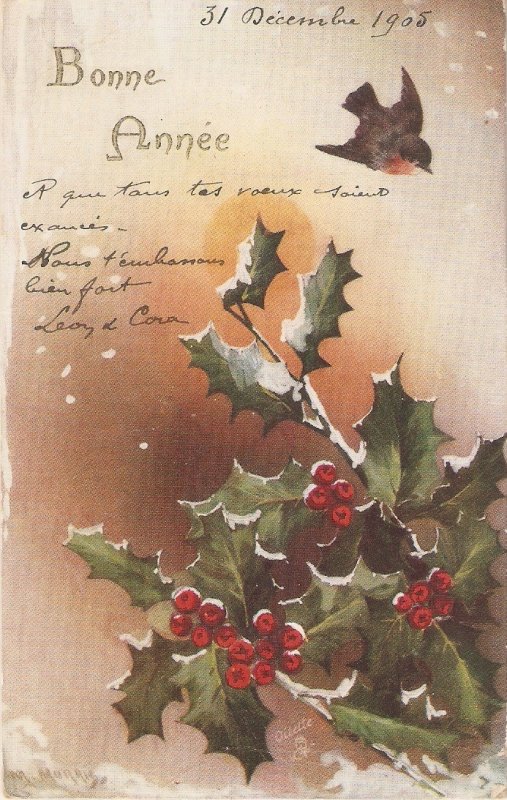 31 Décembre 1905
Bonne
Année
A que tous tes voeux soient
exaucés-
Nous t'embrassons
bien fort
Leon & Cora
Oilette